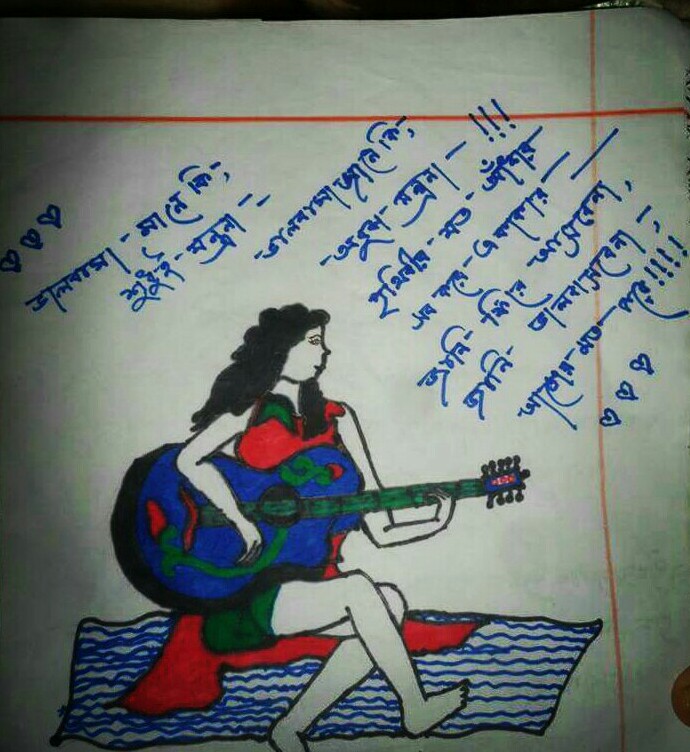 ভালবাসা - মানে কি,
শুধুই - যন্ত্রনা -
ভালবাসা জানে কি,
অবুঝ - যন্ত্রনা - !!!
পৃথিবীর - মত - আঁধার
সব করে - একাকার -
তুমি - ফিরে আসবেনা,
তুমি - ভালবাসবেনা -,
আগের - মত - করে!!!!